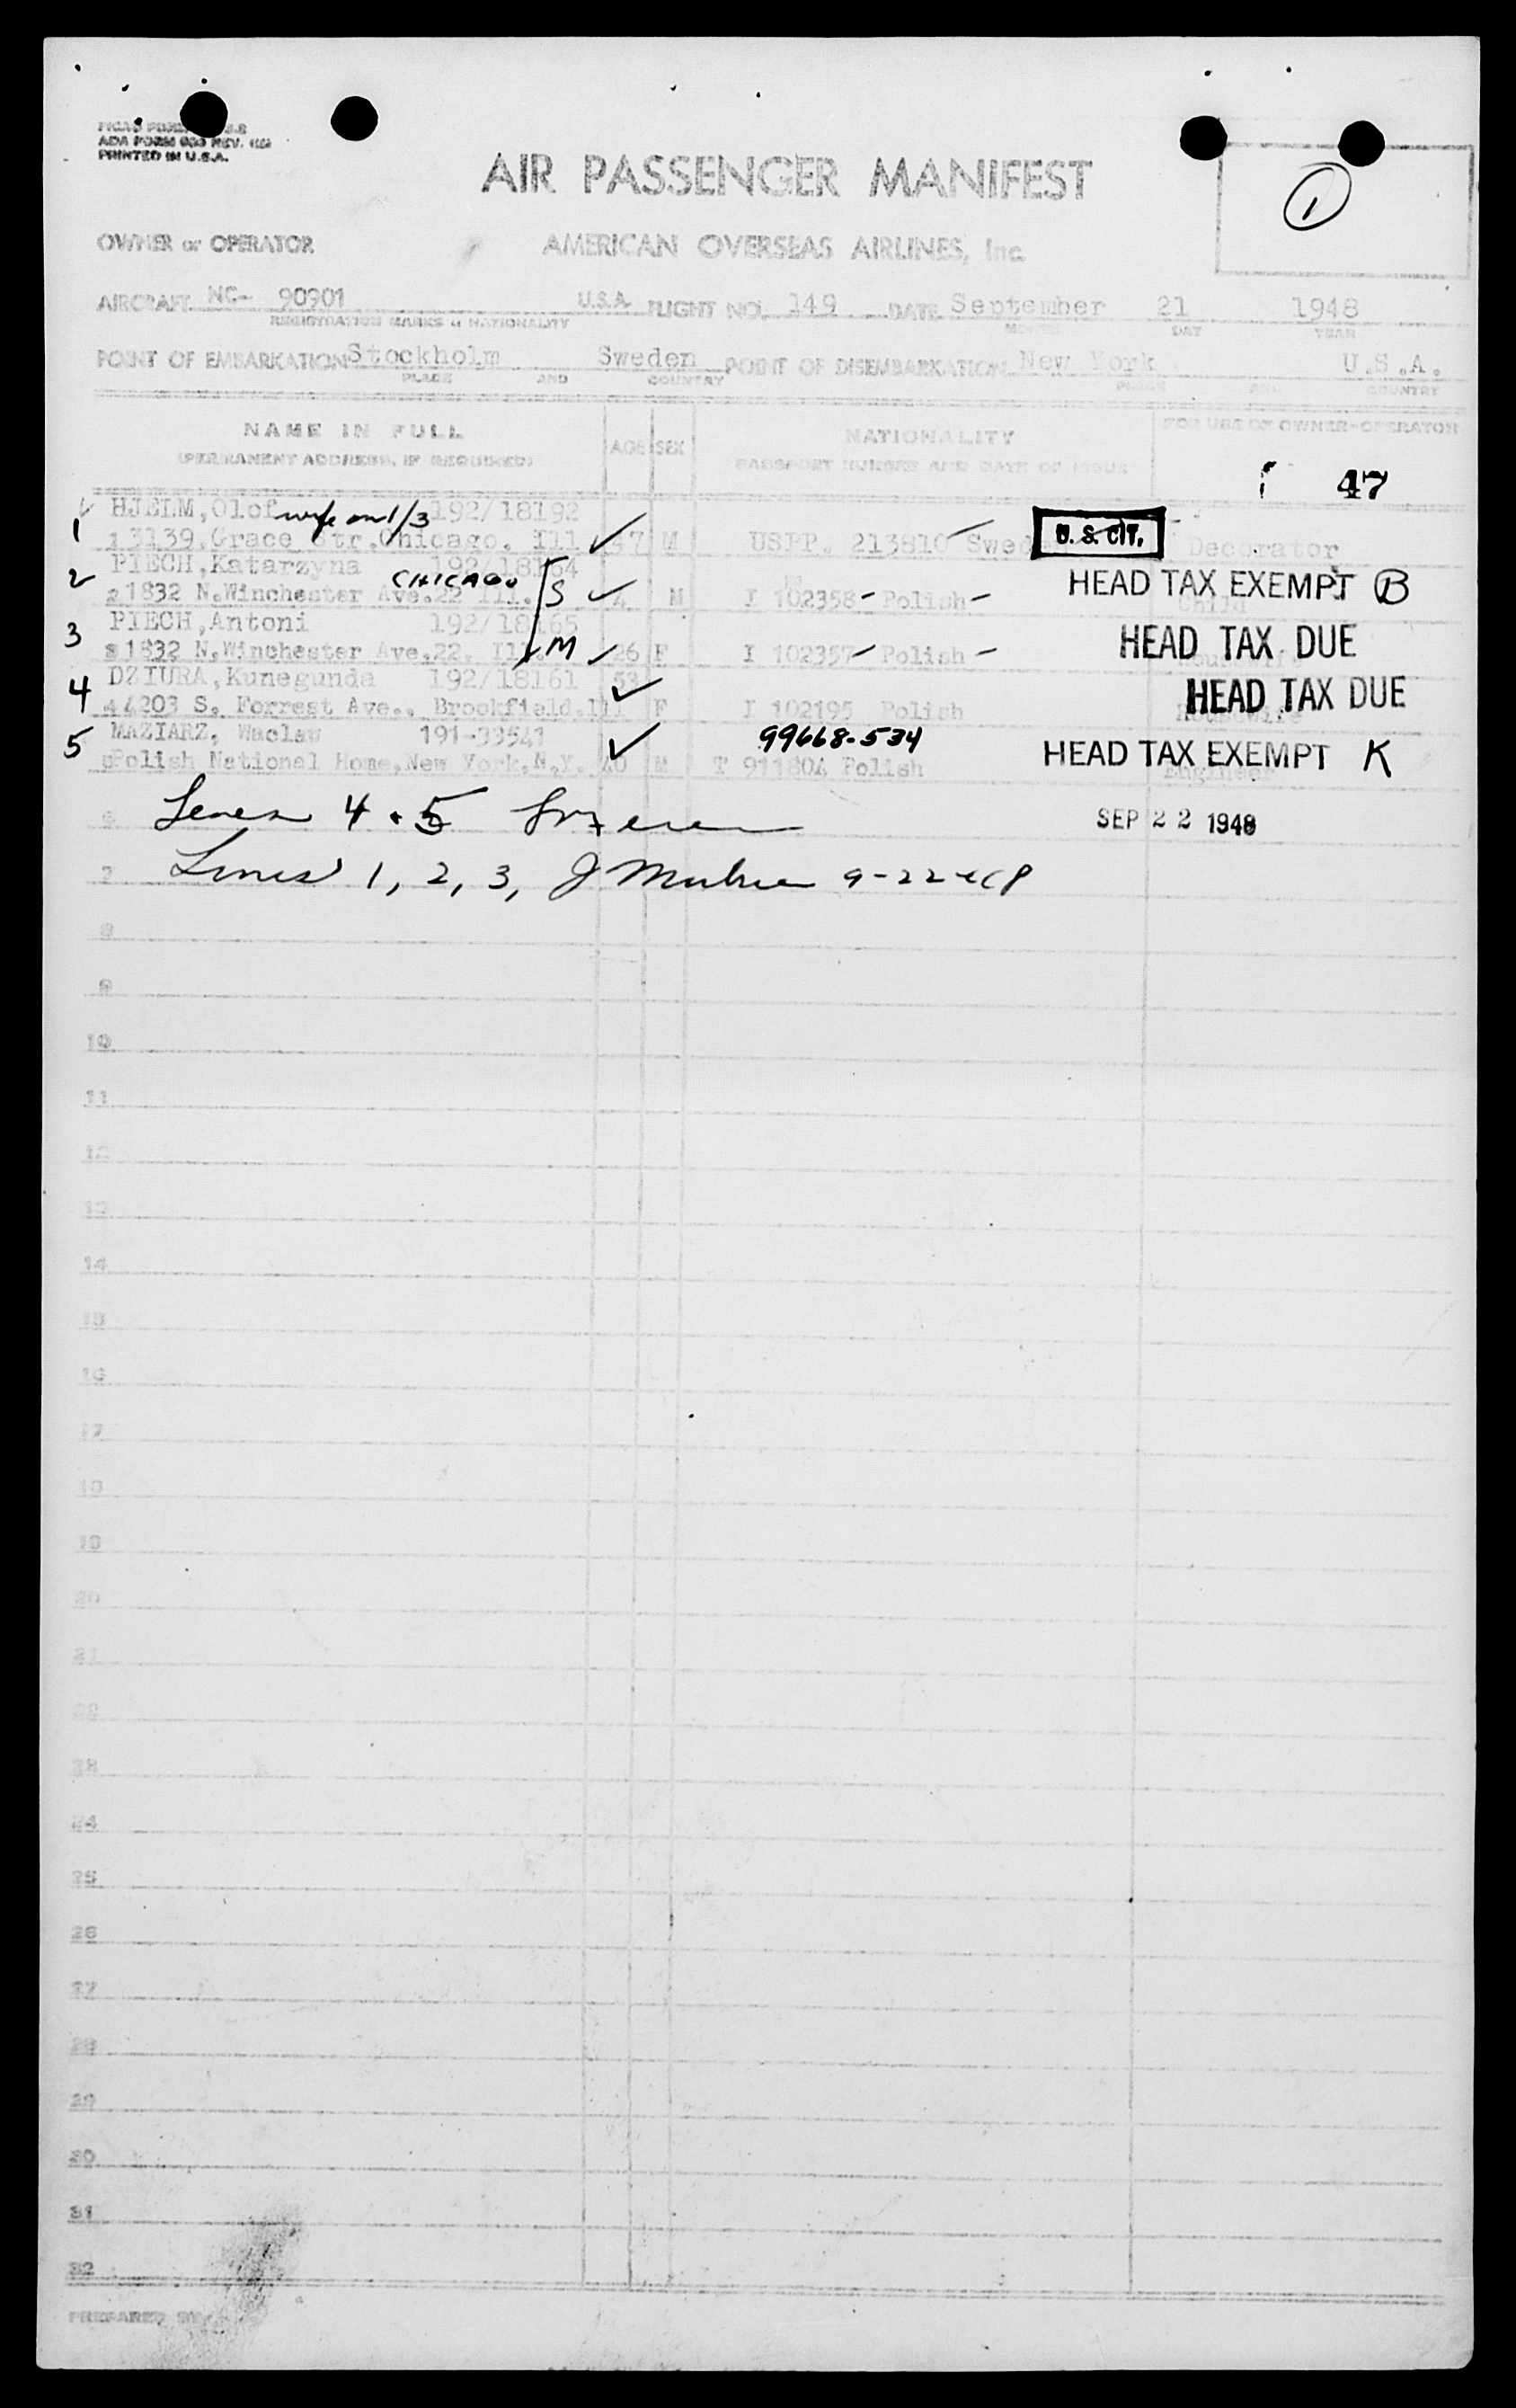 ADA FORM 633 REV.
PRINTED IN U.S.A.
AIR PASSENGER MANIFEST
1
OWNER or OPERATOR AMERICAN OVERSEAS AIRLINES, Inc.
AIRCRAFT NC- 90901 U.S.A. FLIGHT NO. 149 DATE September 21 1948
REGISTRATION MARKS & NATIONALITY MONTH DAY YEAR
POINT OF EMBARKATION Stockholm Sweden POINT OF DISEMBARKATION New York U.S.A.
PLACE AND COUNTRY PLACE AND COUNTRY
NAME IN FULL AGE SEX NATIONALITY FOR USE OF OWNER-OPERATOR
(PERMANENT ADDRESS, IF REQUIRED) PASSPORT NUMBER AND DATE OF ISSUE
47
HJELM, Olof wife 192/18192
1 3139, Grace Str. Chicago. Ill 47 M USPP. 213810 U. S. CIT. Decorator
PIECH, Katarzyna CHICAGO 192/18164
2 1832 N. Winchester Ave. 22 Ill. S 4 I 102358 - Polish - HEAD TAX EXEMPT B Child
PIECH, Antoni 192/18165
3 1832 N. Winchester Ave. 22, Ill. M 26 F I 102357 - Polish - HEAD TAX DUE Housewife
DZIURA, Kunegunda 192/18161 53
4 4203 S. Forrest Ave., Brookfield. Ill F I 102195 Polish HEAD TAX DUE Housewife
MAZIARZ, Waclaw 191-33541 99668-534
5 Polish National Home, New York, N.Y. 40 M T 911804 Polish HEAD TAX EXEMPT K Engineer
6 4 . 5 SEP 22 1948
7 Lines 1, 2, 3, J 9-22-48
8
9
10
11
12
13
14
15
16
17
18
19
20
21
22
23
24
25
26
27
28
29
30
31
32
PREPARED BY